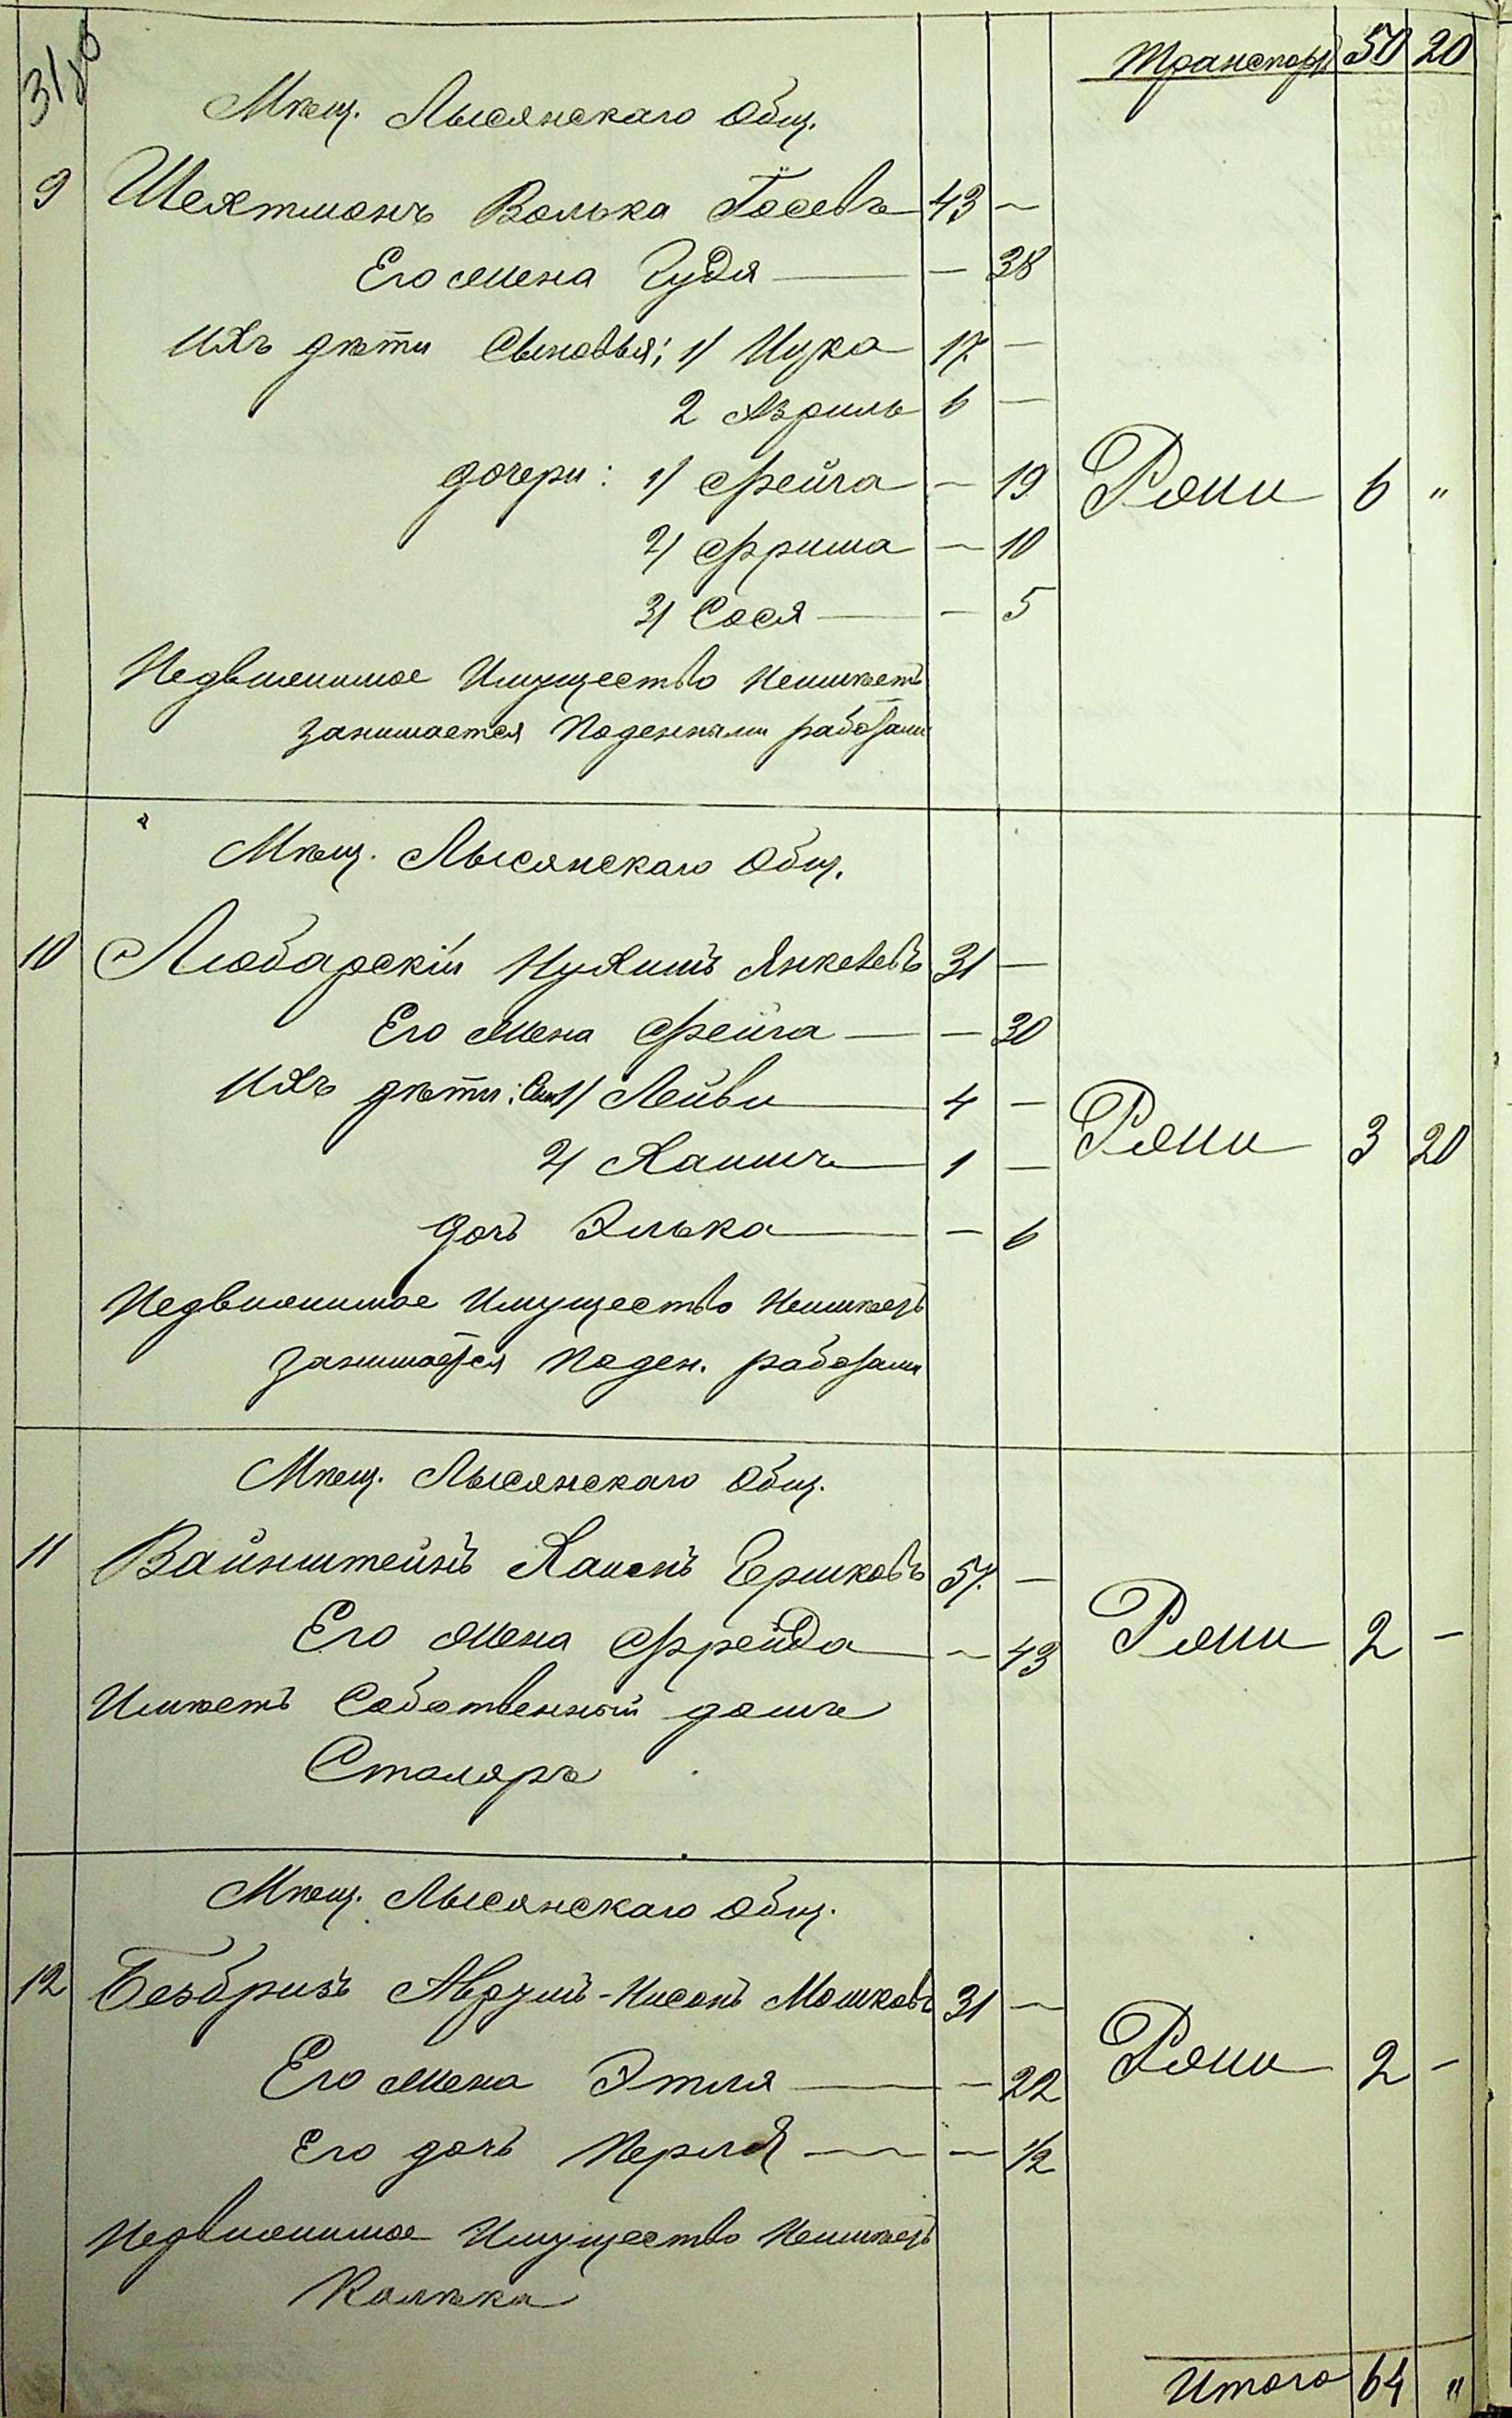 31 об
Транспортъ 50 20
Мѣщ. Лысянскаго Общ.
9 Шехтманъ Волька Іосевъ 43 —
Его жена Гудя — — 38
Ихъ дѣти Сыновья: 1/ Нухa 17 —
2 Азриль 6 —
дочери: 1/ Фейга — 19 Ржи 6 "
2/ Фрима — 10
3/ Сося — — 5
Недвижимое Имущество Неимѣетъ
занимается Поденными работами
Мѣщ. Лысянскаго Общ.
10 Любарскій Нухимъ Янкелевъ 31 —
Его жена Фейга — — 30
Ихъ дѣти: Сын 1/ Лейви — 4 — Ржи 3 20
2/ Хаимъ — 1 —
дочь Элька — — 6
Недвижимое Имущество Неимѣетъ
занимается Поден. работами
Мѣщ. Лысянскаго Общ.
11 Вайнштейнъ Хаимъ Гершковъ 57 —
Его жена Фрейда — — 43 Ржи 2 —
Имѣетъ Собственный домъ
Столяръ
Мѣщ. Лысянскаго Общ.
12 Безбризъ Аврумъ-Нисонъ Мошковъ 31 —
Его жена Этля — — 22 Ржи 2 —
Его дочь Перля — — 1/2
Недвижимое Имущество Неимѣетъ
Калѣка
Итого 64 "